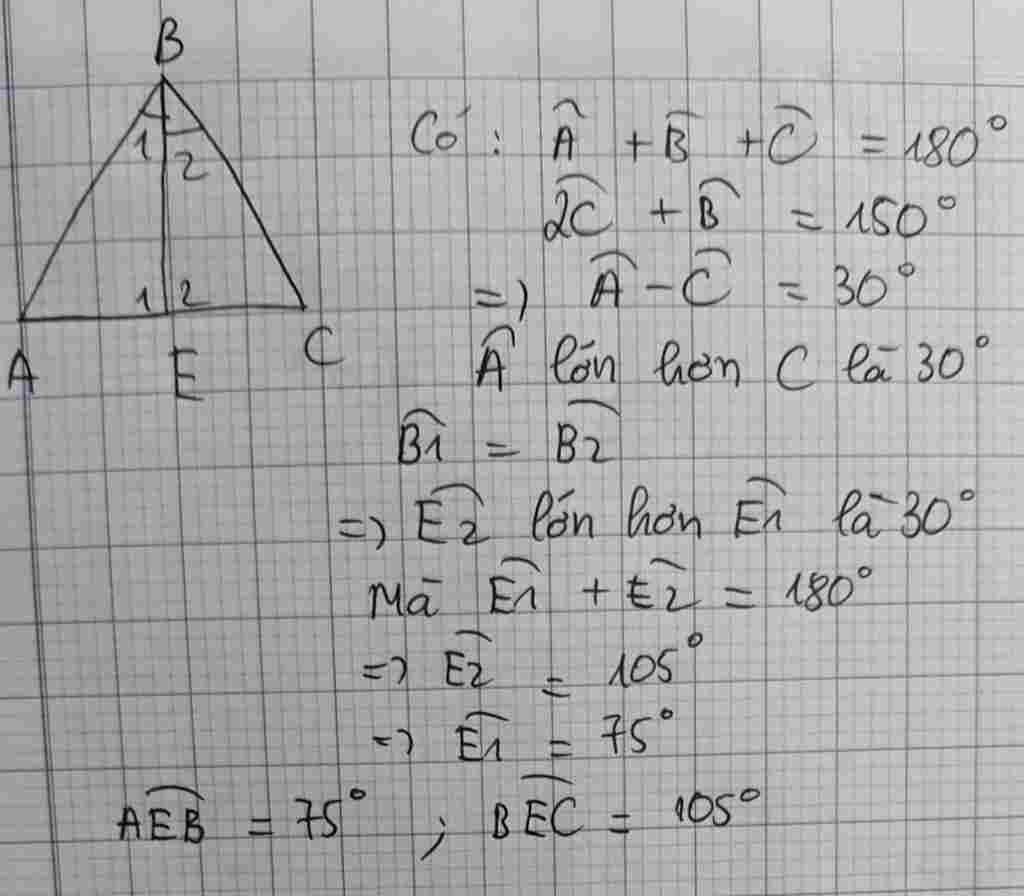 B
1
2
1 2
A
E
C
Có: Â + B̂ + Ĉ = 180°
2Ĉ + B̂ = 150°
=) Â - Ĉ = 30°
Â lớn hơn C là 30°
B̂1 = B̂2
=) Ê2 lớn hơn Ê1 là 30°
Mà Ê1 + Ê2 = 180°
=) Ê2 = 105°
=) Ê1 = 75°
AEB = 75° ; BEC = 105°